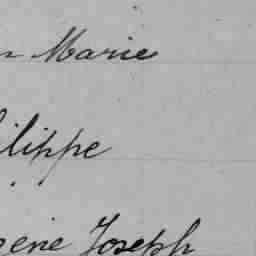 Marie
ilippe
gène Joseph